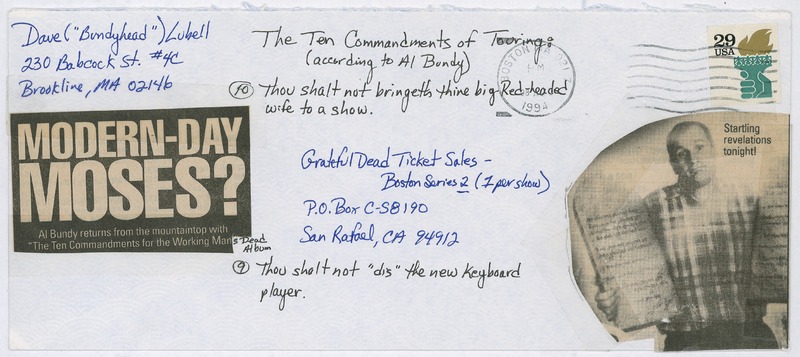 Dave ("Bundyhead") Lubell
230 Babcock St. #4C
Brookline, MA 02146
The Ten Commandments of Touring:
(according to Al Bundy)
10 Thou shalt not bringeth thine big Red headed
wife to a show.
BOSTON
1994
29
USA
MODERN-DAY
MOSES?
Al Bundy returns from the mountaintop with
"The Ten Commandments for the Working Man
's Dead
Album
Grateful Dead Ticket Sales -
Boston Series 2 (1 per show)
P.O. Box C-S8190
San Rafael, CA 94912
9 Thou shalt not "dis" the new keyboard
player.
Startling
revelations
tonight!